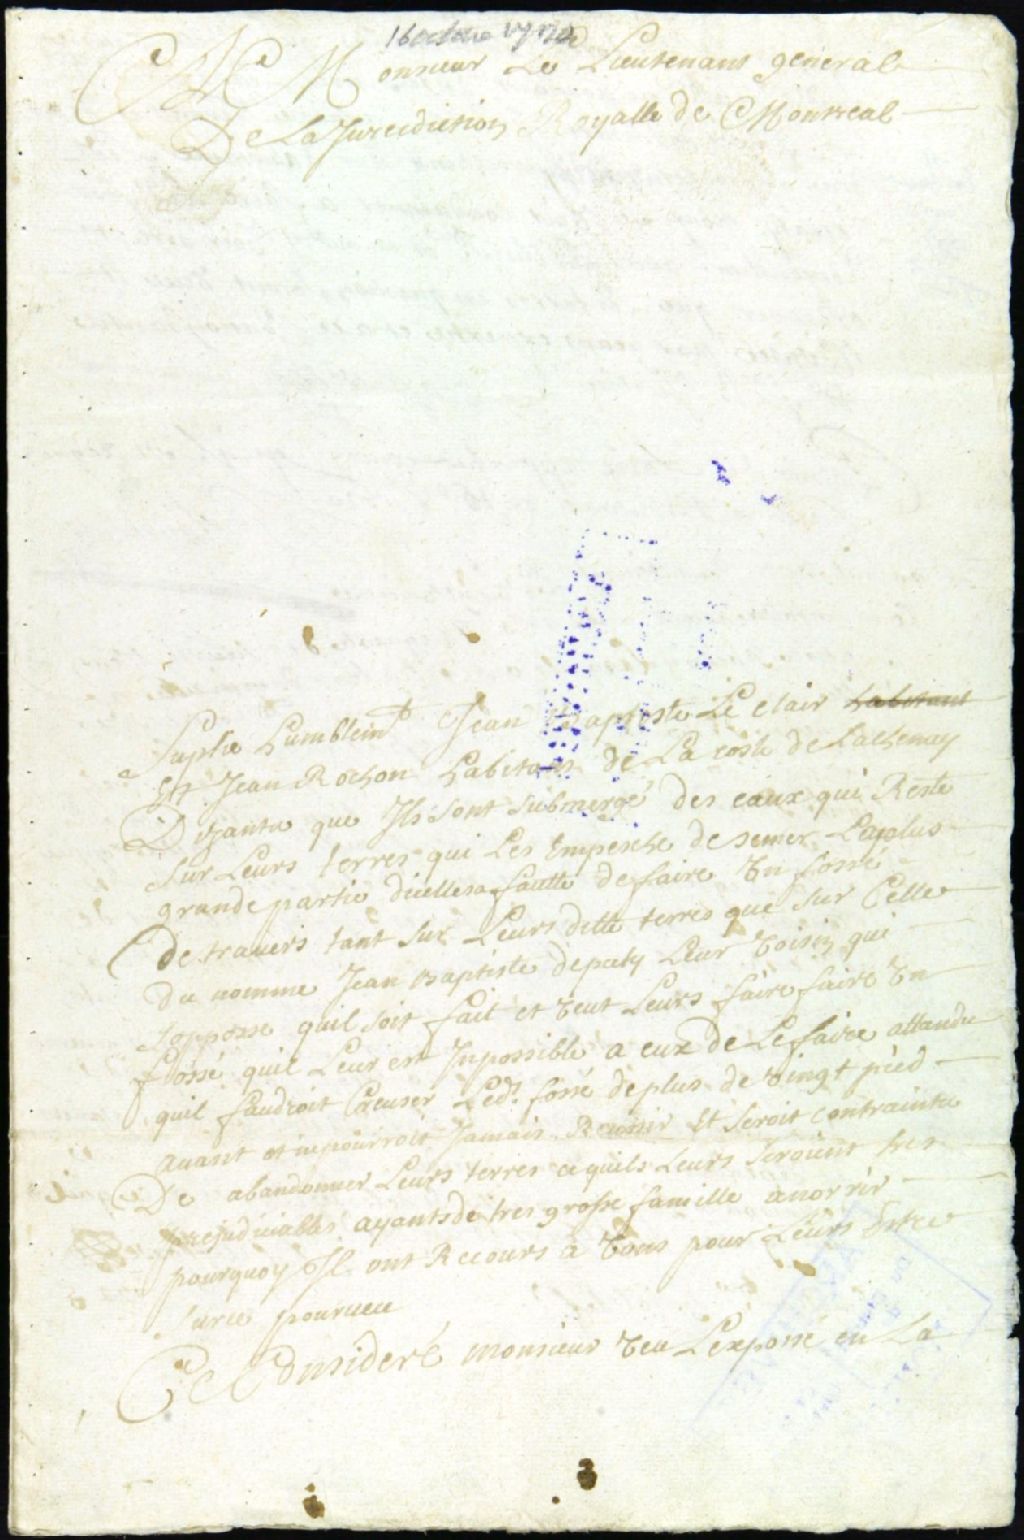 16 octobre
A Monsieur Le Lieutenant general
De La Jurediction Royalle de Montreal
Suplie humblemt Jean Baptiste Le Clair habitant
Et Jean Rochon habitans de La coste de Lachenay
Disantu que Ils sont submergé des eaux qui Reste
sur Leurs terres qui Les Empesche de semer La plus
grande partie dicelles a faulte de faire Un fossé
de travers tant sur Leurs ditte terres que sur Celle
du nomme Jean Baptiste Leur Voisin qui
soppose quil soit fait et veut Leurs faire faire Un
fossé quil Leur est Inpossible a eux de Le faire attandu
quil faudroit Creuser Ledt. fossé de plus de vingt pied
avant et ne pourroit Jamais Reussir Et seroit contrainte
De abandonner Leurs terres ce quils Leurs seroient tres
prejudiciables ayants de tres grosse famille a norrir
pourquoy Il ont Recours a Vous pour Leurs Estre
surce pourveu
Ce Consideré monsieur Veu Lexposé en La